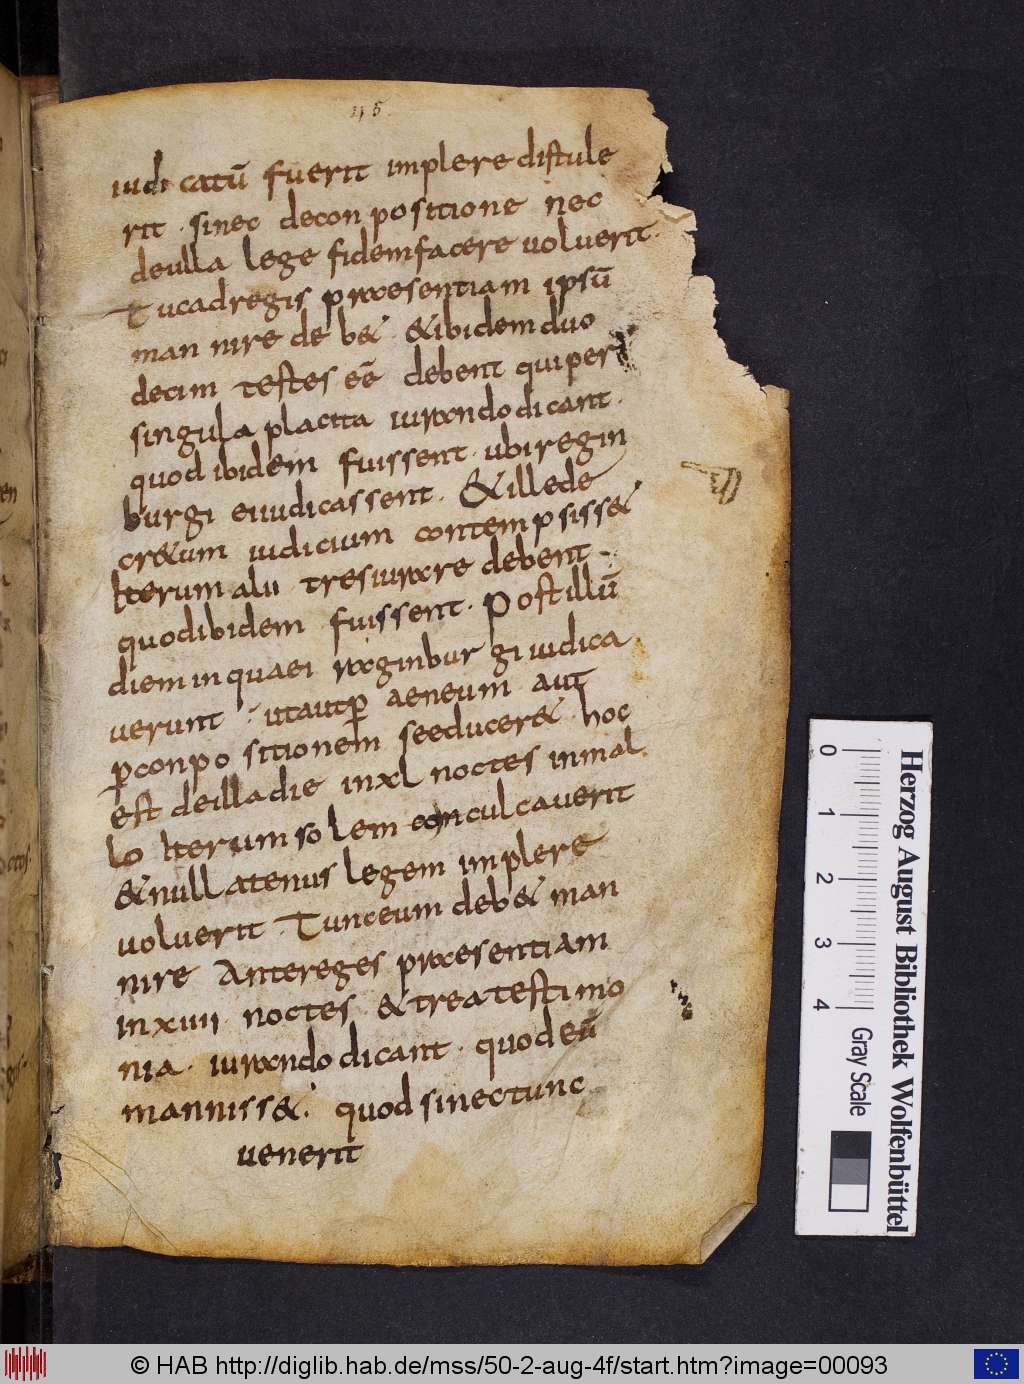 45
iudicatū fuerit implere distule
rit · sinec deconpositione nec
deulla lege fidemfacere uoluerit·
Tucadregis praesentiam ipsū
mannire deb& &ibidemduo
decim testes eē debent quiper
singula placita iurando dicant·
quod ibidem fuissent· ubiregin
burgi eiudicassent· &illede
cr&um iudicium contempsiss&
Iterum alii tresiurare debent
quodibidem fuissent· postillū
diem inquaei raginburgi iudica
uerunt· utautꝑ aeneum aut
ꝑconpositionem seeducer& hoc
est deilladie inxl noctes inmal
lo Iterum solem conculcauerit
&nullatenus legem implere
uoluerit· Tunceum deb& man
nire Antereges praesentiam
inxiiii noctes &treatestimo
nia· iurando dicant· quodeū
manniss&· quodsinectunc
uenerit
0 1 2 3 4
Gray Scale
Herzog August Bibliothek Wolfenbüttel
© HAB http://diglib.hab.de/mss/50-2-aug-4f/start.htm?image=00093